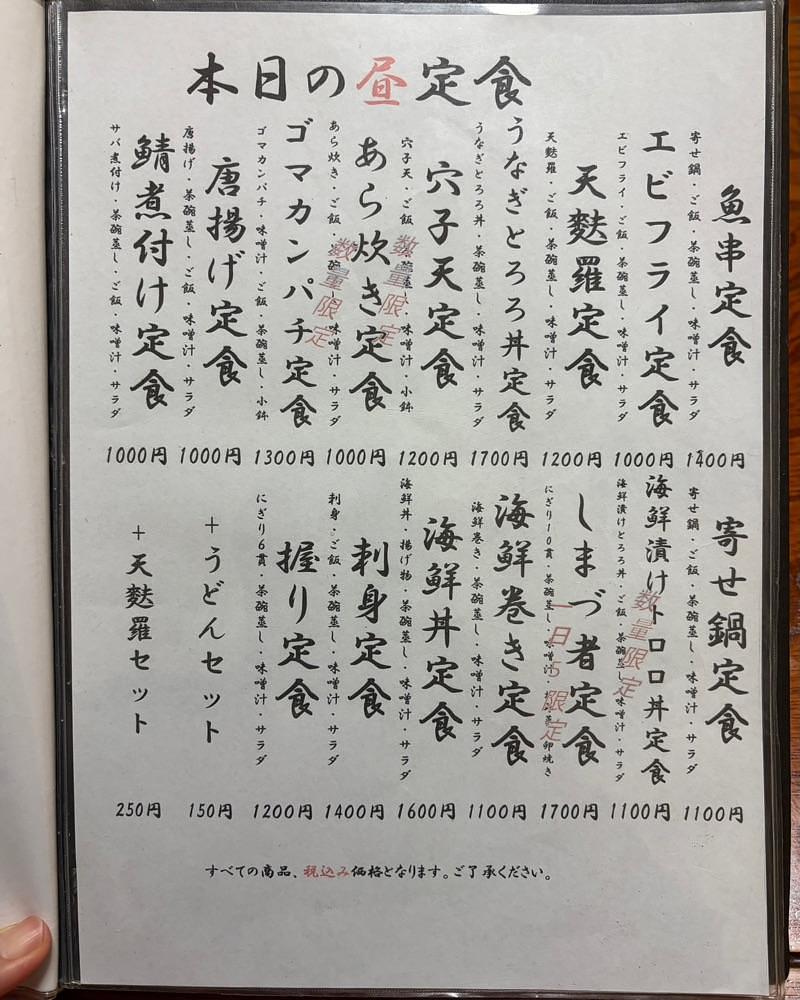 本日の昼定食
魚串定食
寄せ鍋・ご飯・茶碗蒸し・味噌汁・サラダ
1400円
エビフライ定食
エビフライ・ご飯・茶碗蒸し・味噌汁・サラダ
1000円
天麩羅定食
天麩羅・ご飯・茶碗蒸し・味噌汁・サラダ
1200円
うなぎとろろ丼定食
うなぎとろろ丼・茶碗蒸し・味噌汁・サラダ
1700円
穴子天定食
穴子天・ご飯・茶碗蒸し・味噌汁・小鉢
数量限定
1200円
あら炊き定食
あら炊き・ご飯・茶碗蒸し・味噌汁・サラダ
数量限定
1000円
ゴマカンパチ定食
ゴマカンパチ・味噌汁・ご飯・茶碗蒸し・小鉢
1300円
唐揚げ定食
唐揚げ・茶碗蒸し・ご飯・味噌汁・サラダ
1000円
鯖煮付け定食
サバ煮付け・茶碗蒸し・ご飯・味噌汁・サラダ
1000円
寄せ鍋定食
寄せ鍋・ご飯・茶碗蒸し・味噌汁・サラダ
1100円
海鮮漬けトロロ丼定食
海鮮漬けとろろ丼・ご飯・茶碗蒸し・味噌汁・サラダ
数量限定
1100円
しまづ者定食
にぎり10貫・茶碗蒸し・味噌汁・卵焼き
一日5限定
1700円
海鮮巻き定食
海鮮巻き・茶碗蒸し・味噌汁・サラダ
1100円
海鮮丼定食
海鮮丼・揚げ物・茶碗蒸し・味噌汁・サラダ
1600円
刺身定食
刺身・ご飯・茶碗蒸し・味噌汁・サラダ
1400円
握り定食
にぎり6貫・茶碗蒸し・味噌汁・サラダ
1200円
+うどんセット
150円
+天麩羅セット
250円
すべての商品、税込み価格となります。ご了承ください。